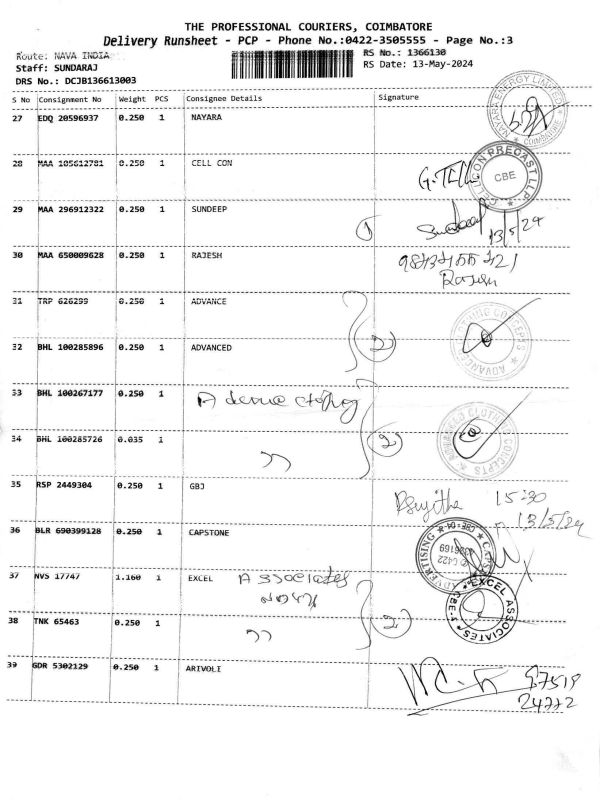 THE PROFESSIONAL COURIERS, COIMBATORE
Delivery Runsheet - PCP - Phone No.:0422-3505555 - Page No.:3
Route: NAVA INDIA
RS No.: 1366130
Staff: SUNDARAJ
RS Date: 13-May-2024
DRS No.: DCJB136613003
S No Consignment No Weight PCS Consignee Details Signature
27 EDQ 20596937 0.250 1 NAYARA
NAYARA ENERGY LIMITED * COIMBATORE *
28 MAA 105612781 0.250 1 CELL CON
CELLCON PRECAST LLP * CBE
29 MAA 296912322 0.250 1 SUNDEEP 1 Sundeep 13/5/24
30 MAA 650009628 0.250 1 RAJESH
Rajesh
31 TRP 626299 0.250 1 ADVANCE
32 BHL 100285896 0.250 1 ADVANCED 2
33 BHL 100267177 0.250 1
34 BHL 100285726 0.035 1 " 2
CLOTHING CONCEPTS
35 RSP 2449304 0.250 1 GBJ 15:30
13/5/24
36 BLR 690399128 0.250 1 CAPSTONE
ADVERTISING * CBE-04 * CAPS
37 NVS 17747 1.160 1 EXCEL Associates
EXCEL ASSOCIATES * CBE-
38 TNK 65463 0.250 1 " 2
39 GDR 5302129 0.250 1 ARIVOLI 97519
24772